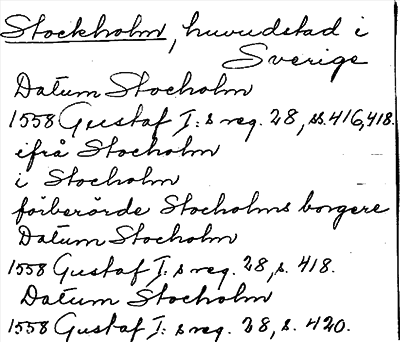 Stockholm, huvudstad i
Sverige
Datum Stocholm
1558 Gustaf I:s reg. 28, ss. 416, 418.
ifrå Stocholm
i Stocholm
förberörde Stocholms borgere
Datum Stocholm
1558 Gustaf I:s reg. 28, s. 418.
Datum Stocholm
1558 Gustaf I:s reg. 28, s. 420.